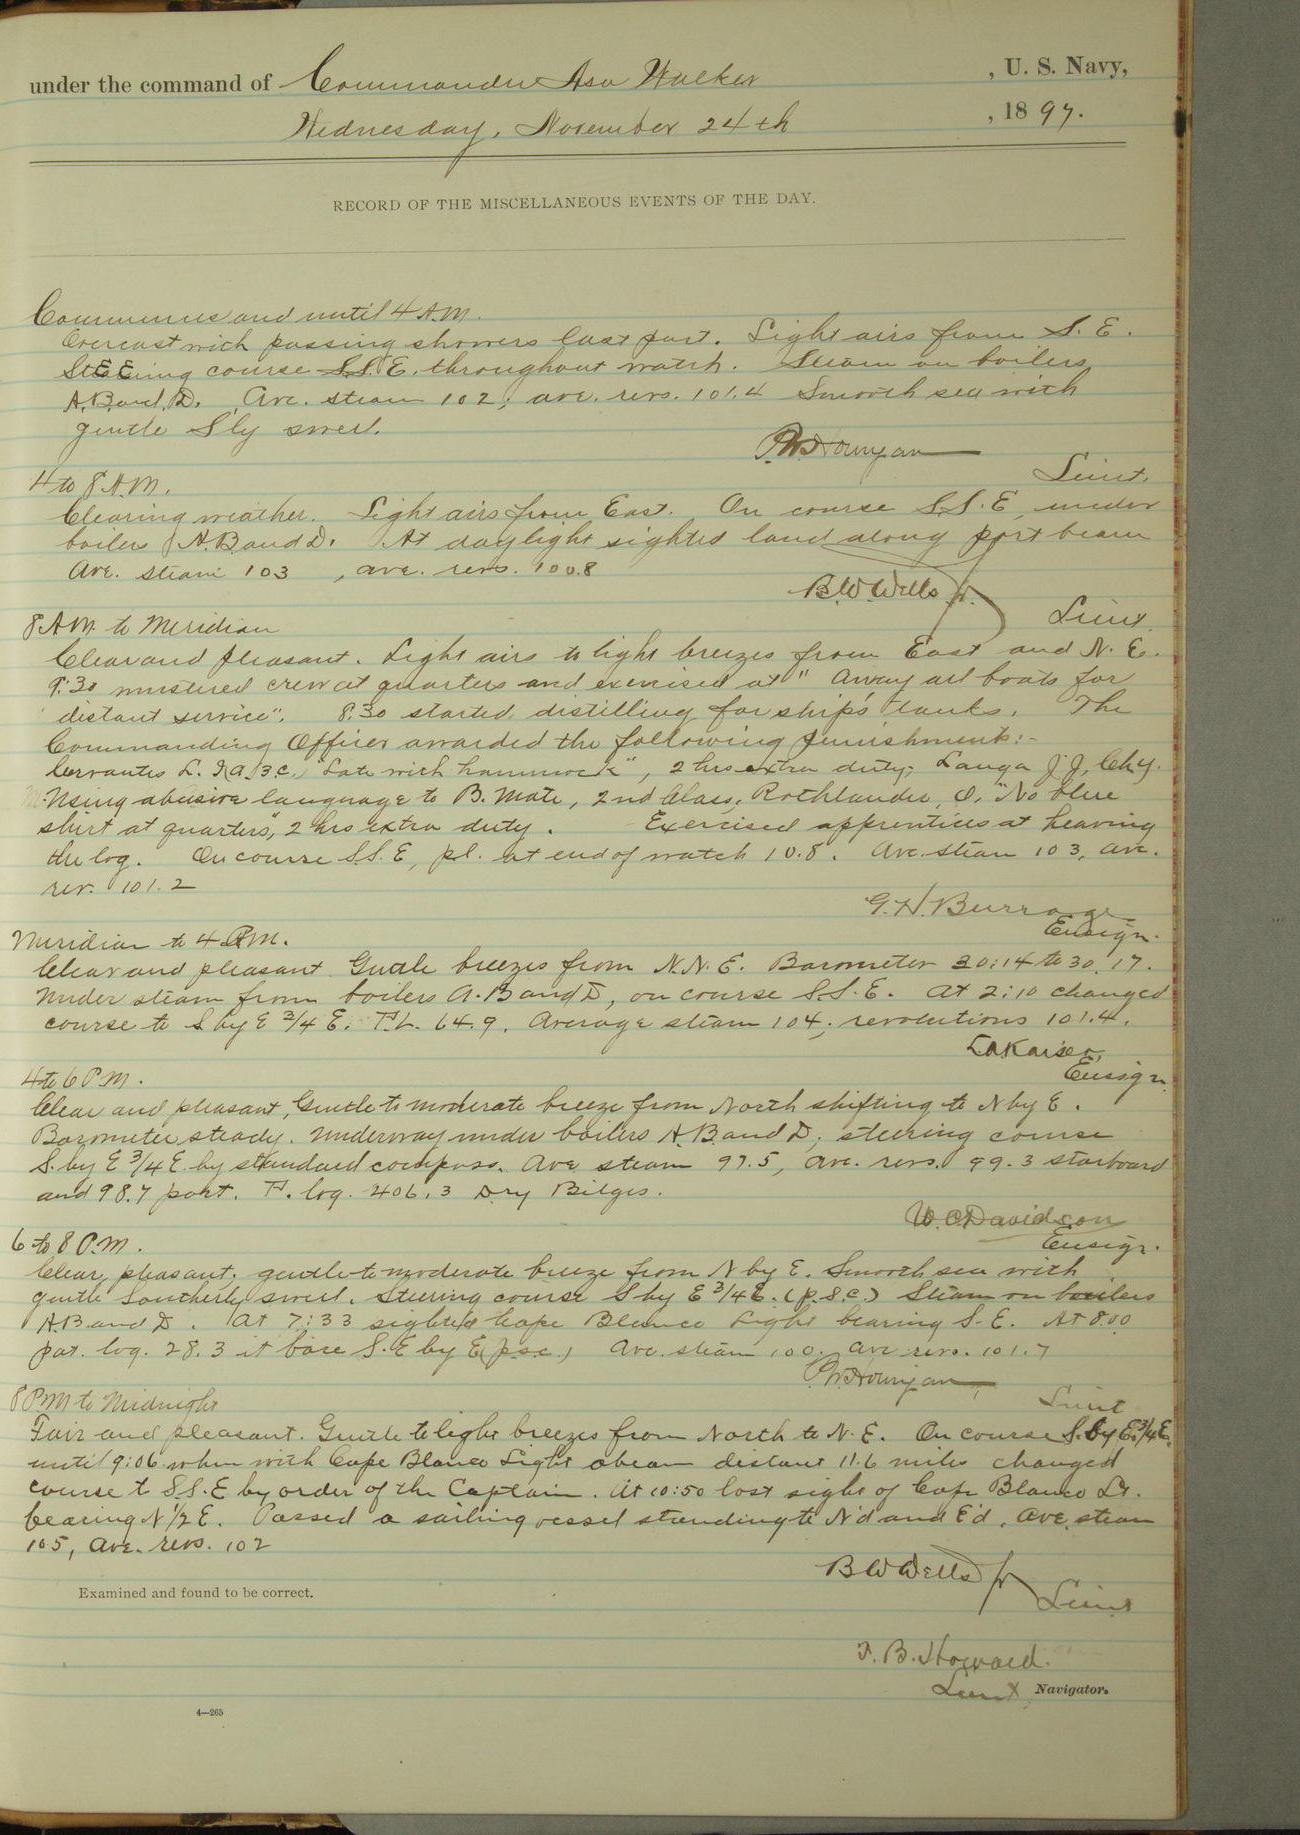 under the command of Commander Asa Walker, U. S. Navy,
Wednesday, November 24th, 1897.
RECORD OF THE MISCELLANEOUS EVENTS OF THE DAY.
Commences and until 4 A.M.
Overcast with passing showers last part. Light airs from S. E.
Steering course S.S.E. throughout watch. Steam on boilers
A.B. and D. Ave. steam 102; ave. revs. 101.4 Smooth sea with
gentle S'ly swell.
P.W. Hourigan
Lieut.
4 to 8 A.M.
Clearing weather. Light airs from East. On course S.S.E, under
boilers A.B and D. At daylight sighted land along port beam
Ave. steam 103, ave. revs. 100.8
B.W. Wells Jr.
Lieut.
8 A.M. to Meridian
Clear and pleasant. Light airs to light breezes from East and N. E.
9:30 mustered crew at quarters and exercised at "Away all boats for
distant service". 8.30 started distilling for ship's tanks. The
Commanding Officer awarded the following punishments:-
Cervantes L. "Late with hammock", 2 hrs extra duty; Langa J.J,
Using abusive language to B. Mate, 2nd Class, Rothlander, O. "No blue
shirt at quarters", 2 hrs extra duty. Exercised apprentices at heaving
the log. On course S.S.E, p.l. at end of watch 10.8. Ave. steam 103, ave.
rev. 101.2
G.H. Burrage
Ensign.
Meridian to 4 P.M.
Clear and pleasant Gentle breezes from N.N.E. Barometer 30:14 to 30.17.
Under steam from boilers A.B and D, on course S.S.E. At 2:10 changed
course to S. by E 3/4 E. P.L. 64.9. Average steam 104; revolutions 101.4.
L A Kaiser,
Ensign.
4 to 6 P.M.
Clear and pleasant, Gentle to moderate breeze from North shifting to N by E.
Barometer steady. Underway under boilers A.B and D; steering course
S. by E 3/4 E. by standard compass. Ave steam 97.5, ave. revs. 99.3 starboard
and 98.7 port. P. log. 406.3 Dry Bilges.
W.C. Davidson
Ensign.
6 to 8 P.M.
Clear, pleasant; gentle to moderate breeze from N by E. Smooth sea with
gentle Southerly swell. Steering course S by E 3/4 E. (p.s.c.) Steam on boilers
A.B and D. At 7:33 sighted Cape Blanco Light bearing S. E. At 8.00
pat. log. 28.3 it bore S.E by E (p.s.c.) Ave. steam 100. ave revs. 101.7
P.W. Hourigan
Lieut
8 P.M to Midnight
Fair and pleasant. Gentle to light breezes from North to N. E. On course S. by E. 3/4 E.
until 9:06 when with Cape Blanco Light abeam distant 11.6 miles changed
course to S.S.E by order of the Captain. At 10:50 lost sight of Cape Blanco Lt.
bearing N 1/2 E. Passed a sailing vessel standing to N'd and E'd. Ave. steam
105, Ave. revs. 102
B W Wells Jr
Lieut
Examined and found to be correct.
T. B. Howard.
Lieut, Navigator.
4—265